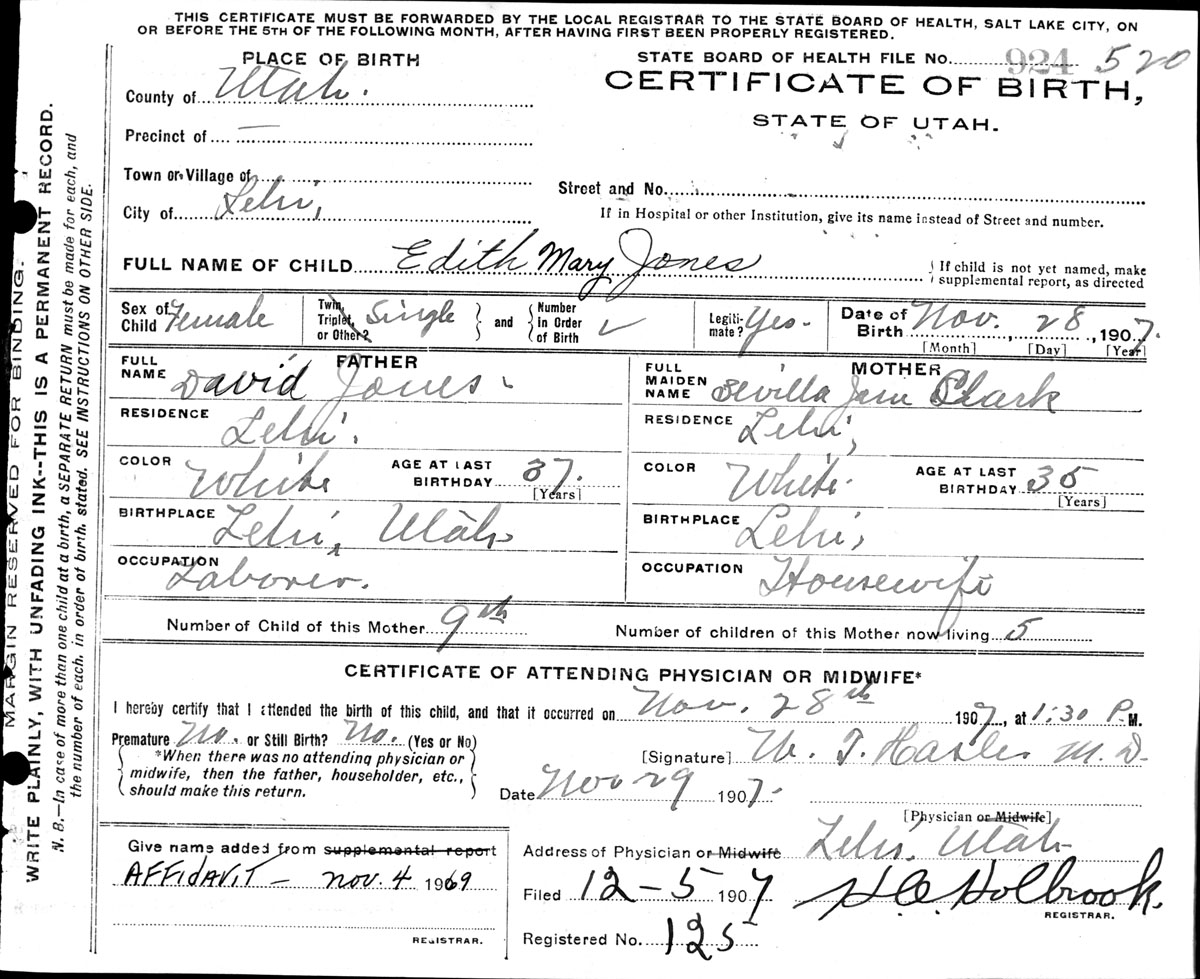 THIS CERTIFICATE MUST BE FORWARDED BY THE LOCAL REGISTRAR TO THE STATE BOARD OF HEALTH, SALT LAKE CITY, ON
OR BEFORE THE 5TH OF THE FOLLOWING MONTH, AFTER HAVING FIRST BEEN PROPERLY REGISTERED.
MARGIN RESERVED FOR BINDING.
WRITE PLAINLY, WITH UNFADING INK--THIS IS A PERMANENT RECORD.
N. B.—In case of more than one child at a birth, a SEPARATE RETURN must be made for each, and
the number of each, in order of birth, stated. SEE INSTRUCTIONS ON OTHER SIDE.
PLACE OF BIRTH
STATE BOARD OF HEALTH FILE No. 924 520
CERTIFICATE OF BIRTH,
STATE OF UTAH.
County of Utah.
Precinct of —
Town or Village of
City of Lehi,
Street and No.
If in Hospital or other Institution, give its name instead of Street and number.
FULL NAME OF CHILD Edith Mary Jones
If child is not yet named, make
supplemental report, as directed
Sex of Child Female
Twin, Triplet, or Other? Single and Number in Order of Birth ✓
Legitimate? Yes.
Date of Birth Nov. 28, 1907.
[Month] [Day] [Year]
FATHER
FULL NAME David Jones.
RESIDENCE Lehi.
COLOR White AGE AT LAST BIRTHDAY 37.
[Years]
BIRTHPLACE Lehi, Utah
OCCUPATION Laborer.
MOTHER
FULL MAIDEN NAME Sevilla Jane Clark
RESIDENCE Lehi,
COLOR White. AGE AT LAST BIRTHDAY 35
[Years]
BIRTHPLACE Lehi,
OCCUPATION Housewife
Number of Child of this Mother 9th Number of children of this Mother now living 5
CERTIFICATE OF ATTENDING PHYSICIAN OR MIDWIFE*
I hereby certify that I attended the birth of this child, and that it occurred on Nov. 28th 1907, at 1:30 P.M.
Premature No. or Still Birth? No. (Yes or No)
*When there was no attending physician or
midwife, then the father, householder, etc.,
should make this return.
[Signature] W. T. Hasler M.D.
Date Nov 29 1907.
[Physician or Midwife]
Give name added from supplemental report
AFFIDAVIT — NOV. 4 1969
REGISTRAR.
Address of Physician or Midwife Lehi, Utah
Filed 12-5 1907 H.C. Holbrook.
REGISTRAR.
Registered No. 125